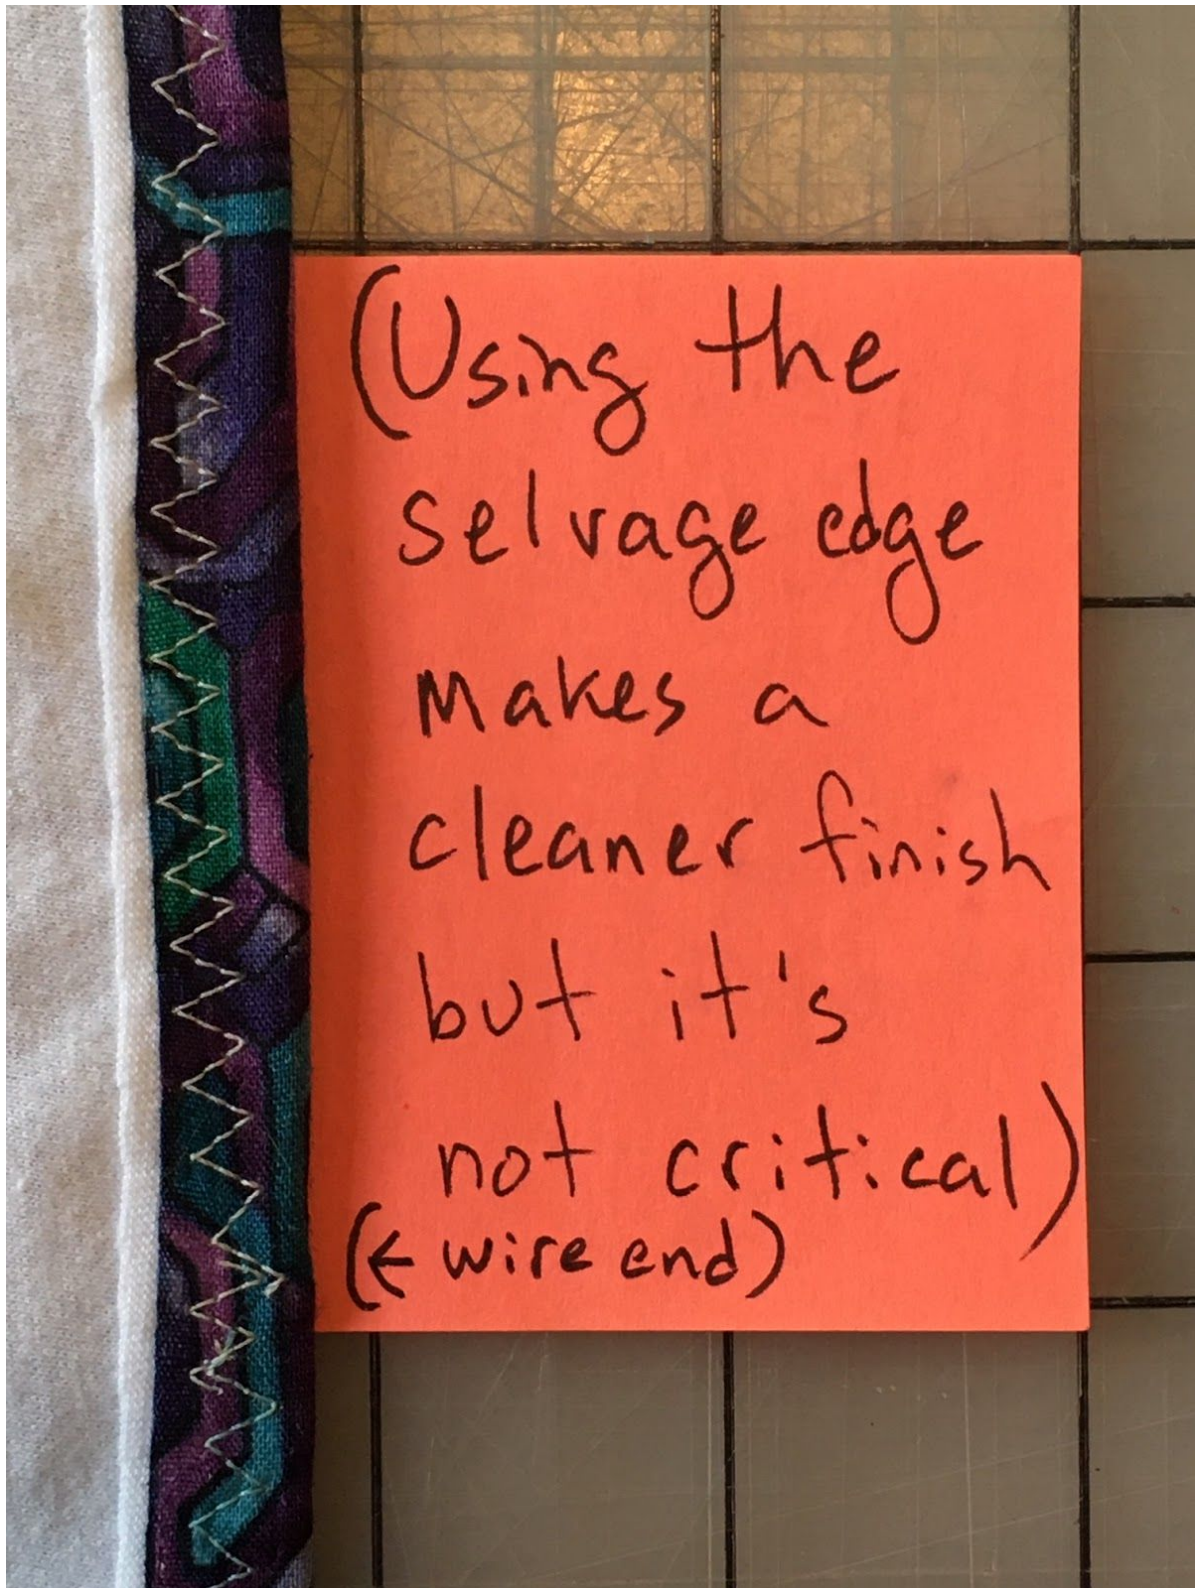 (Using the
selvage edge
makes a
cleaner finish
but it's
not critical)
(← wire end)